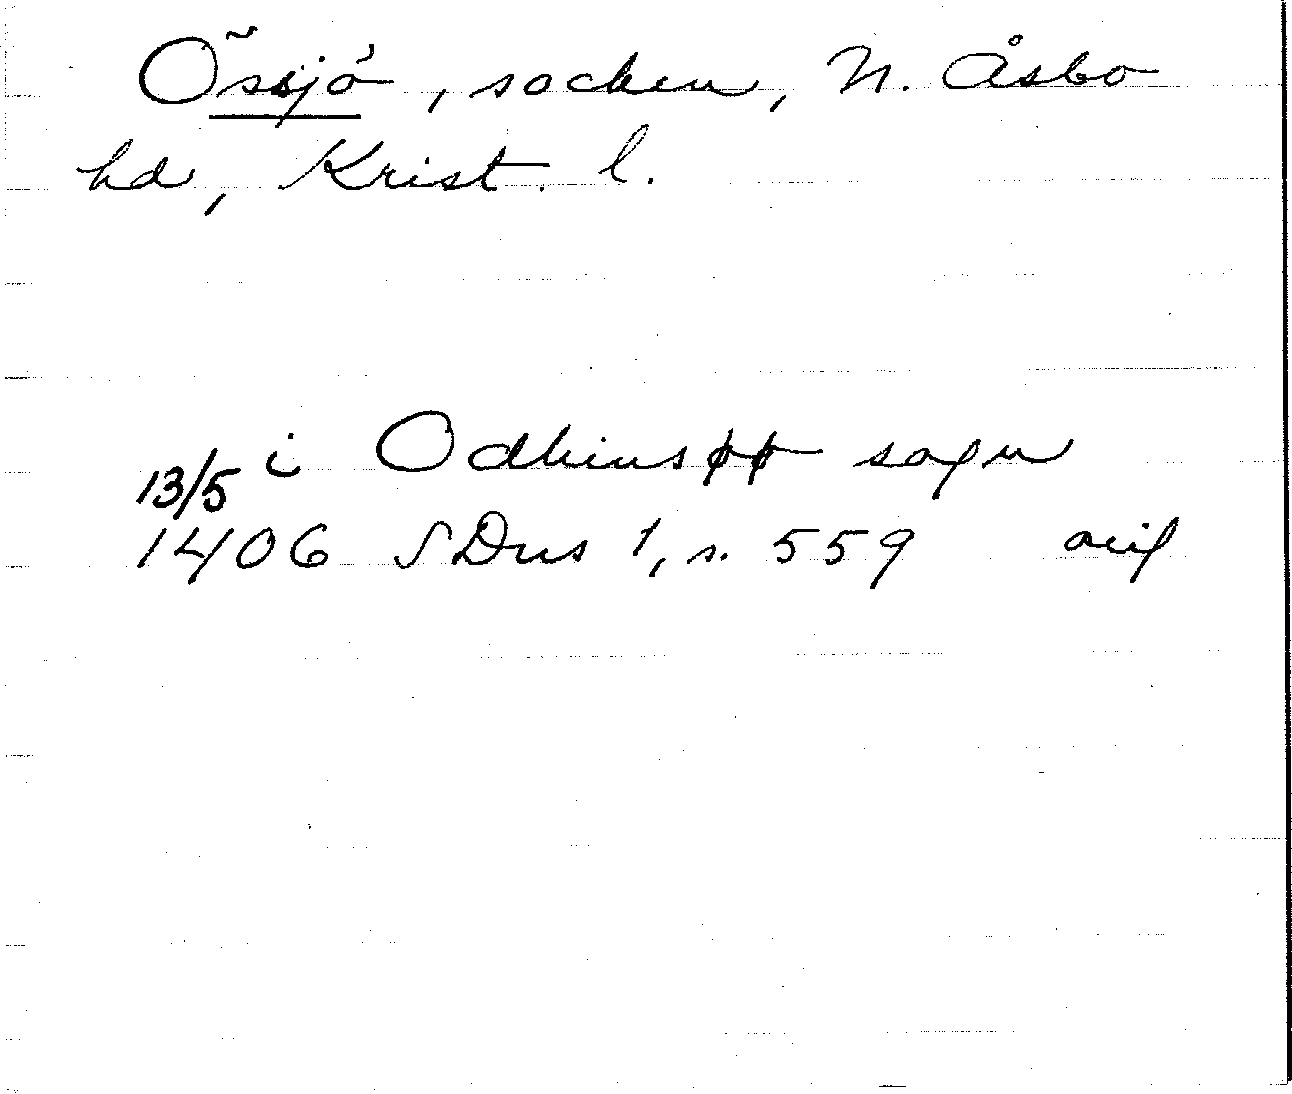 Össjö, socken, N. Åsbo
hd, Krist. l.
i Odhinsøø sogn
13/5
1406 SDns 1, s. 559